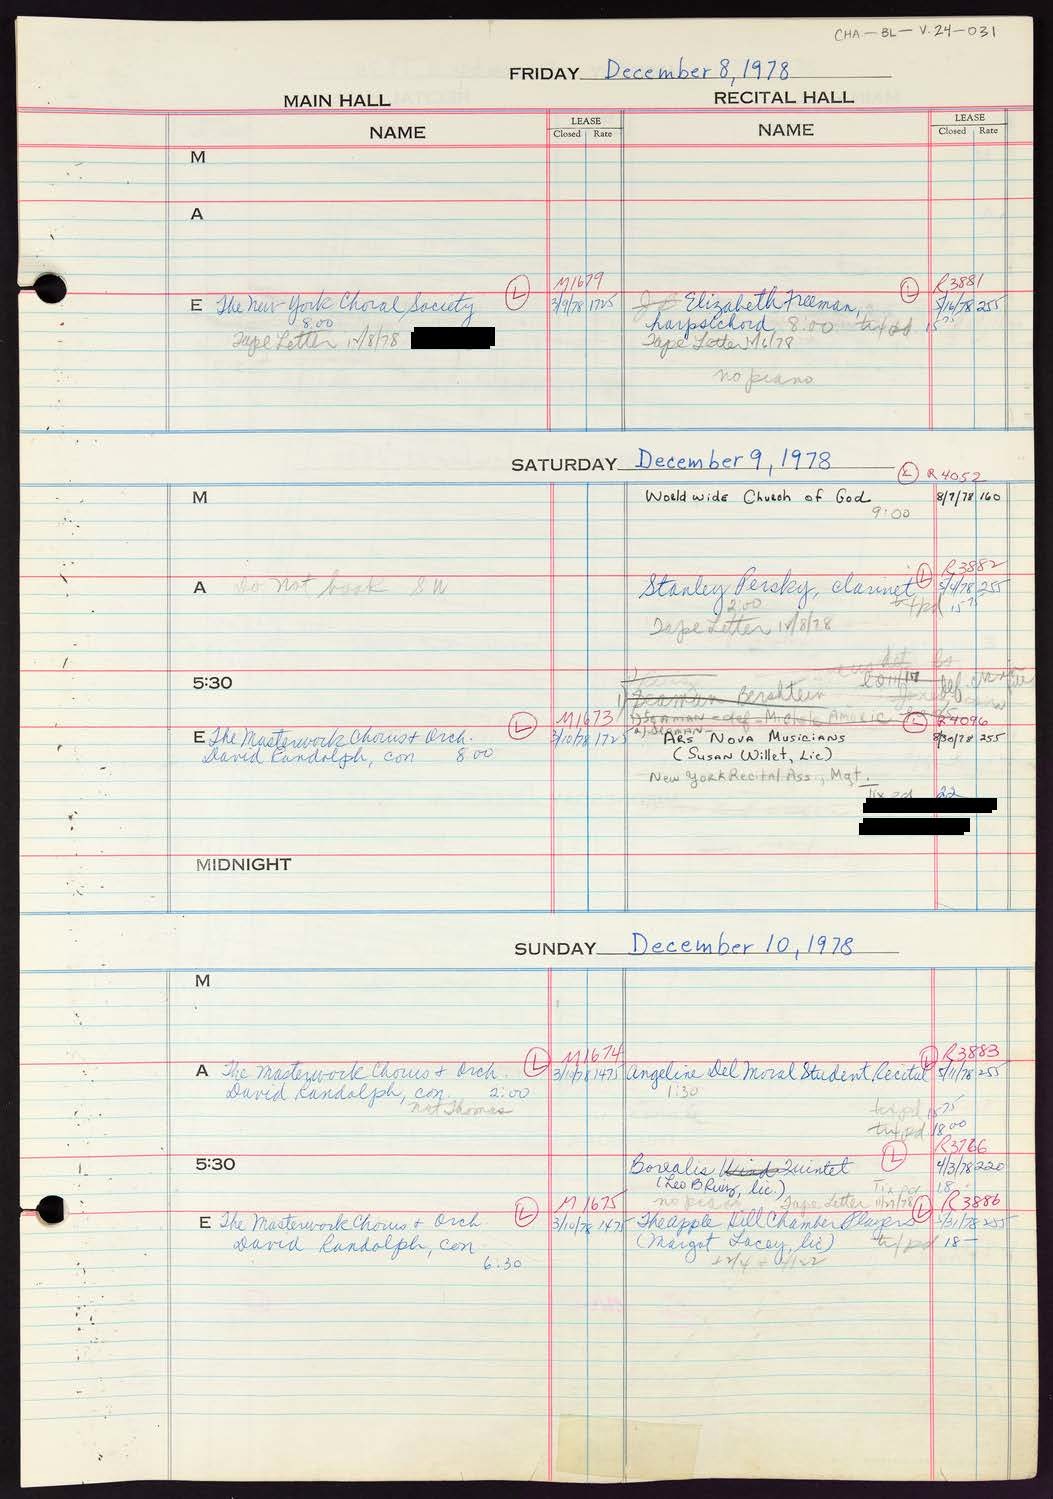 CHA-BL-V.24-031
FRIDAY December 8, 1978
MAIN HALL RECITAL HALL
NAME LEASE Closed Rate NAME LEASE Closed Rate
M
A
M1679 R3881
E The New York Choral Society L 3/9/78 1725 Elizabeth Freeman, L 5/16/78 255
8:00 harpsichord 8:00 tix pd 15 75
Tape Letter 12/8/78 Tape Letter
no piano
SATURDAY December 9, 1978
L R4052
M World wide Church of God 8/7/78 160
9:00
R3882
A Do Not book SW Stanley Persky, clarinet L 5/4/78 255
2:00 tix pd 15 75
Tape Letter 12/8/78
5:30
Seaman Bernstein
L M1673 L R4096
E The Masterwork Chorus + Orch. 3/10/78 1725 Ars Nova Musicians 8/30/78 255
David Randolph, con 8:00 (Susan Willet, Lic)
New York Recital Ass., Mgt.
Tix pd 22
MIDNIGHT
SUNDAY December 10, 1978
M
L M1674 L R3883
A The Masterwork Chorus + Orch. 3/10/78 1475 Angeline Del Moral Student Recital 5/11/78 255
David Randolph, con. 2:00 1:30
not Thomas
tix pd 15 75
tix pd 18 00
L R3766
5:30 Borealis Wind Quintet 4/3/78 220
(Leo B Ruiz, lic.) Tix pd 18-
no piano Tape Letter
L M1675 L R3886
E The Masterwork Chorus + Orch 3/10/78 1475 The Apple Hill Chamber Players 255
David Randolph, con (Margot Lacey, lic) tix pd 18-
6:30